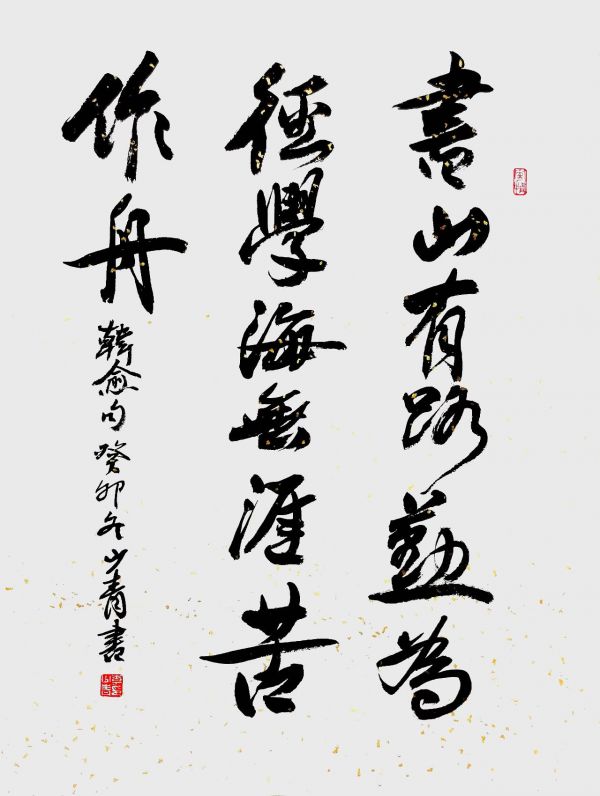 書山有路勤為
徑學海無涯苦
作舟
韓愈句癸卯冬少青書